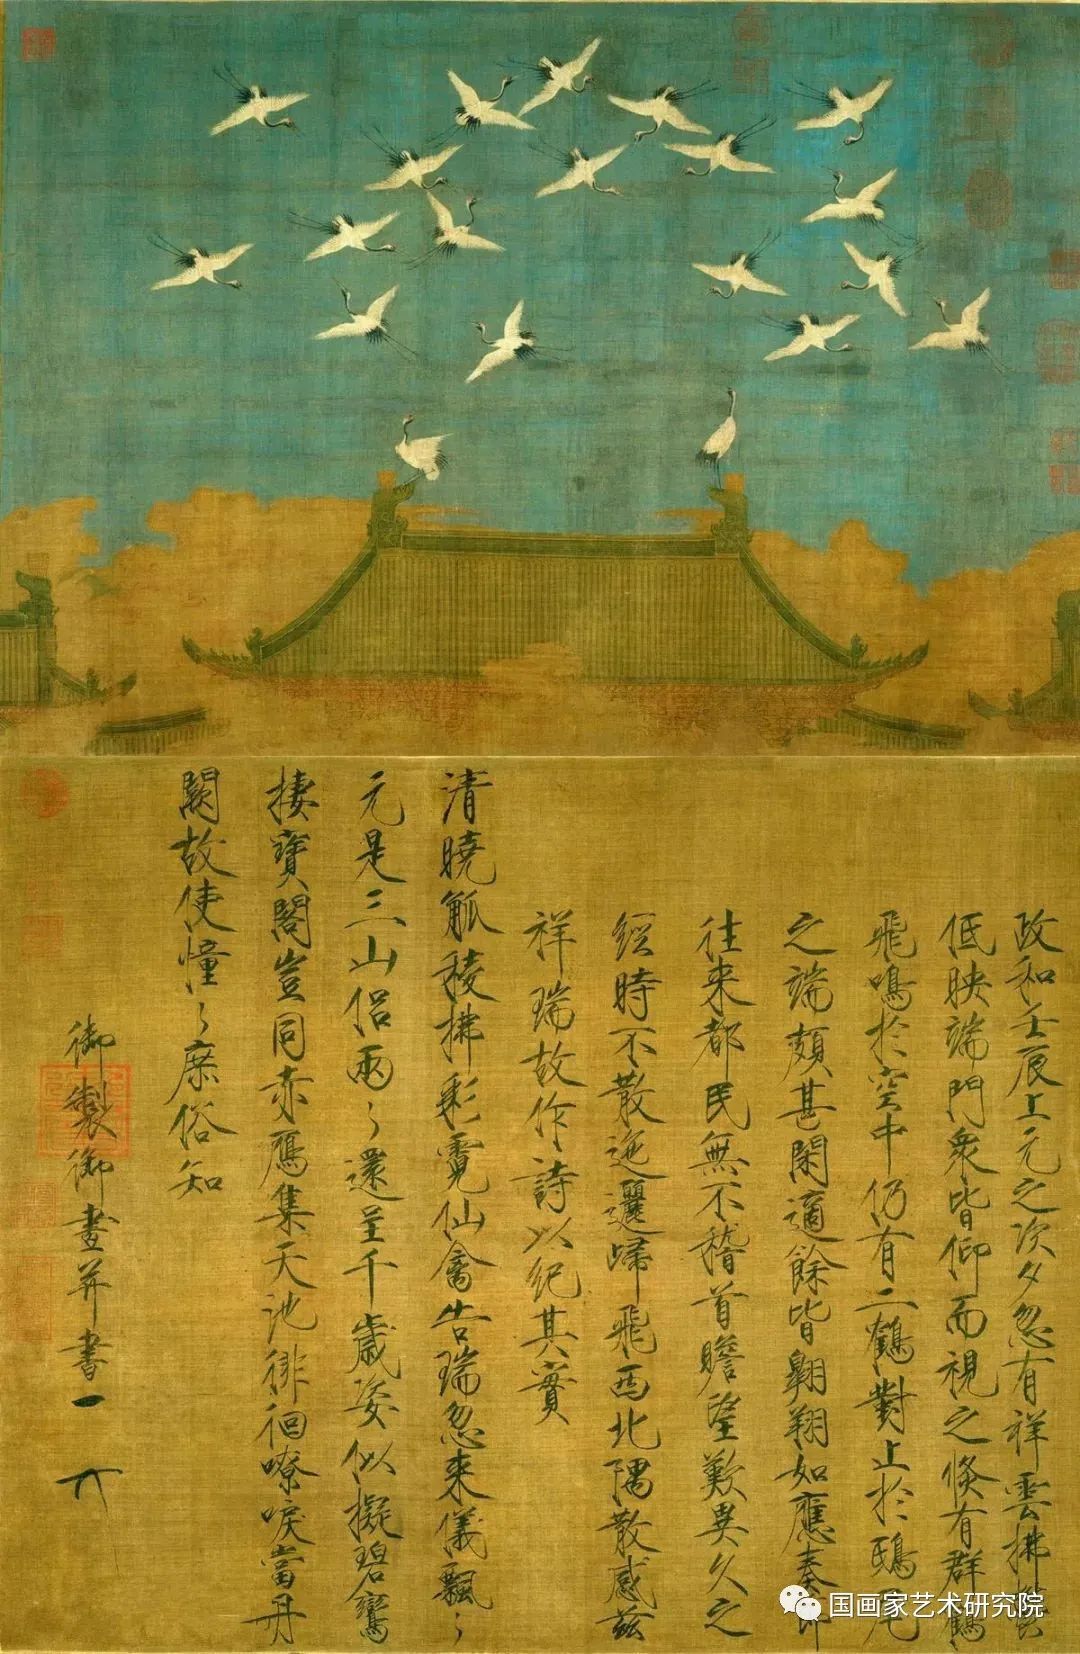 政和壬辰上元之次夕忽有祥雲拂鬱
低映端門衆皆仰而視之倏有群鶴
飛鳴於空中仍有二鶴對止於鴟尾
之端頗甚閑適餘皆翱翔如應奏節
往来都民無不稽首瞻望歎異久之
經時不散迤邐歸飛西北隅散感茲
祥瑞故作詩以紀其實
清曉觚稜拂彩霓仙禽告瑞忽来儀飄々
元是三山侣兩々還呈千歳姿似擬碧鸞
棲寳閣豈同赤鴈集天池徘徊嘹唳當丹
闕故使憧々庶俗知
御製御畫并書
国画家艺术研究院